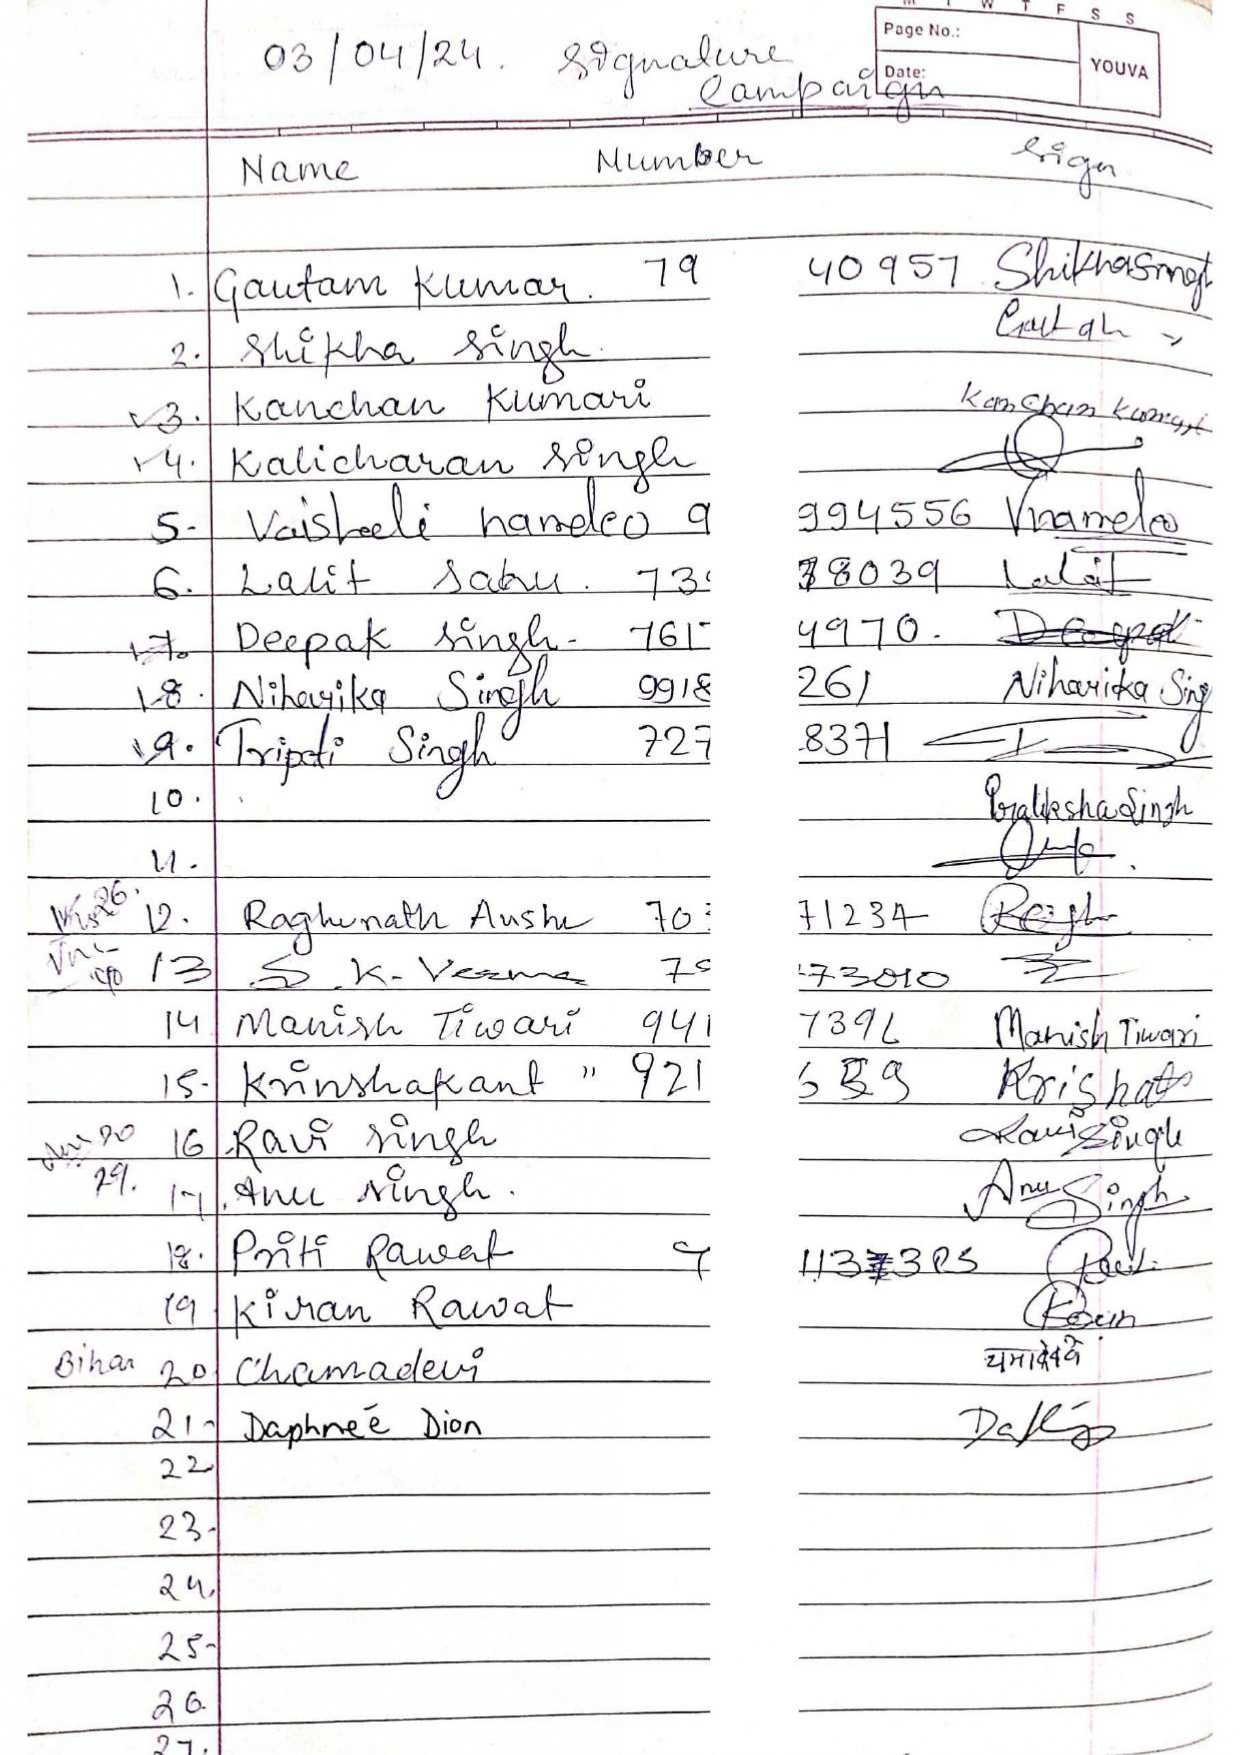 M T W T F S S
Page No.:
Date:
YOUVA
03/04/24. Signature
Campaign
Name Number Sign
1. Gautam Kumar. 79 40957 Shikha Singh
2. Shikha Singh.
3. Kanchan Kumari Kanchan Kumari
4. Kalicharan Singh
5- Vaishali namdeo 9 994556 Vnamdeo
6. Lalit Sahu. 73 38039 Lalit
7. Deepak Singh- 761 4970. Deepak
8. Niharika Singh 9918 261 Niharika Sing
9. Tripti Singh 727 8371
10. Pratiksha Singh
11.
12. Raghunath Aushe 70 71234
13 S. K. Verma 7 73010
14 Manish Tiwari 941 7396 Manish Tiwari
15- Krinshakant " 921 559
16 Ravi Singh Ravi Singh
29.
17. Anu Singh. Anu Singh
18. Priti Rawat 9 113 3
19 Kiran Rawat
Bihar 20 Chamadevi
21- Daphneé Dion
22
23-
24.
25-
26.
27.